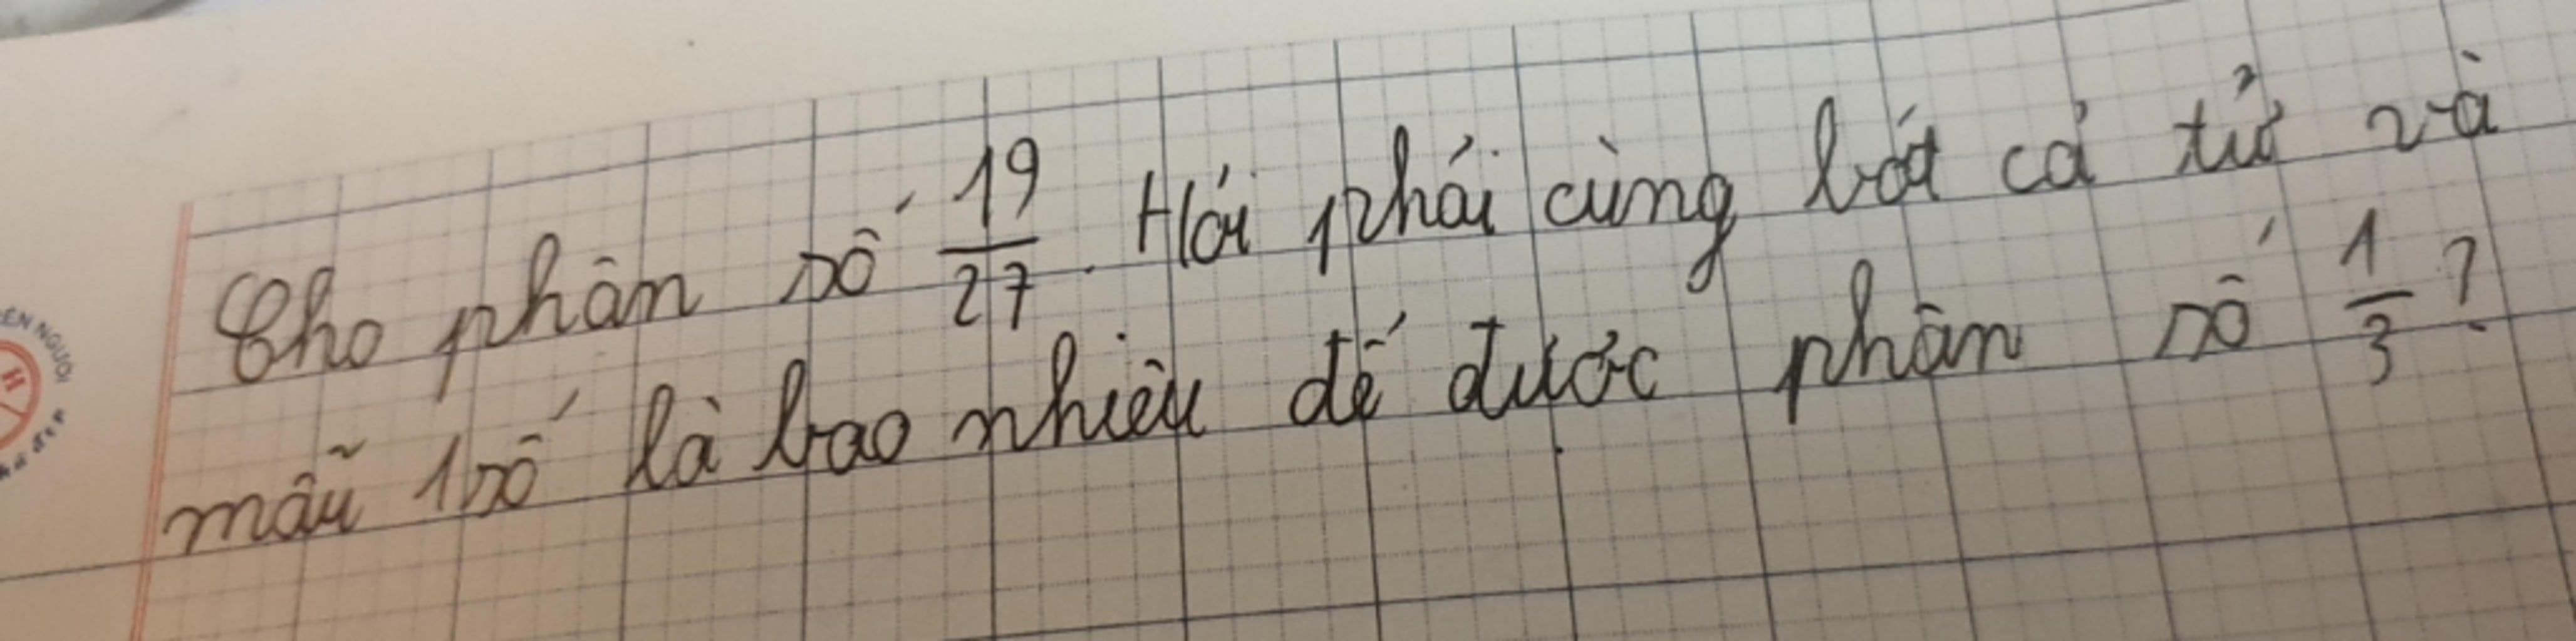 Cho phân số 19/27. Hỏi phải cùng bớt cả tử và
mẫu 1 số là bao nhiêu để được phân số 1/3?